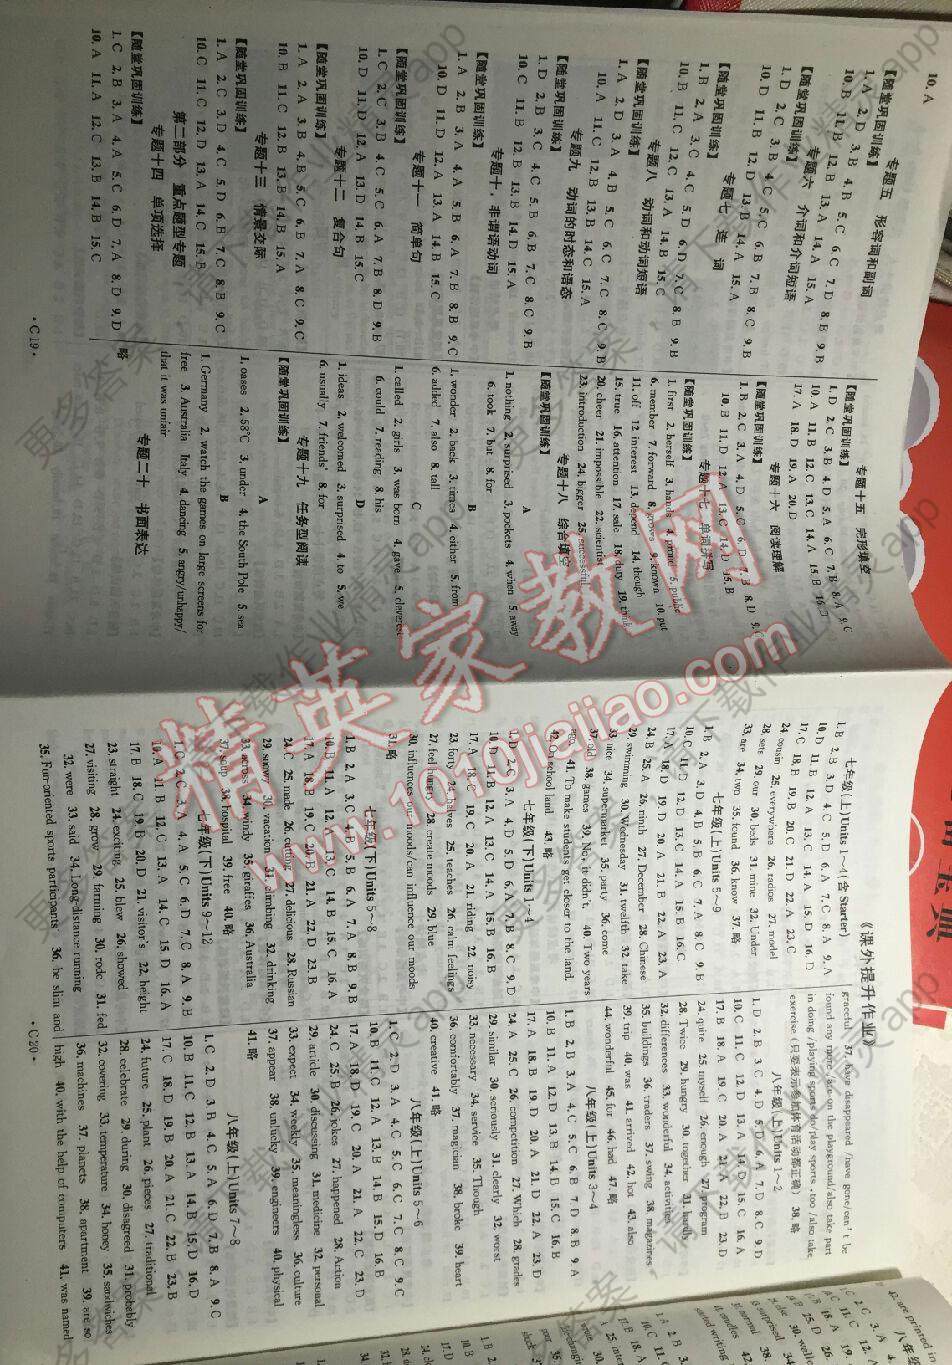 10. A
专题五 形容词和副词
【随堂巩固训练】
1. A 2. D 3. B 4. B 5. C 6. C 7. D 8. B 9. B
10. B 11. B 12. B 13. A 14. A 15. A
专题六 介词和介词短语
【随堂巩固训练】
1. D 2. C 3. B 4. C 5. C 6. B 7. B 8. C 9. B
10. D 11. B 12. D 13. B 14. A 15. A
专题七 连 词
【随堂巩固训练】
1. B 2. A 3. C 4. C 5. D 6. D 7. C 8. B 9. B
10. B 11. C 12. C 13. A 14. B 15. C
专题八 动词和动词短语
【随堂巩固训练】
1. A 2. D 3. A 4. B 5. C 6. C 7. C 8. C 9. B
10. A 11. C 12. B 13. B 14. C 15. A
专题九 动词的时态和语态
【随堂巩固训练】
1. D 2. B 3. C 4. C 5. B 6. B 7. C 8. C 9. B
10. C 11. B 12. B 13. B 14. D 15. A
专题十 非谓语动词
【随堂巩固训练】
1. A 2. B 3. A 4. A 5. B 6. A 7. B 8. B 9. C
10. D 11. D 12. A 13. A 14. B 15. C
专题十一 简单句
【随堂巩固训练】
1. C 2. C 3. B 4. C 5. C 6. A 7. B 8. D 9. B
10. D 11. D 12. A 13. D 14. B 15. C
专题十二 复合句
【随堂巩固训练】
1. A 2. A 3. A 4. B 5. C 6. B 7. A 8. C 9. C
10. B 11. C 12. B 13. B 14. B 15. A
专题十三 情景交际
【随堂巩固训练】
1. A 2. C 3. D 4. C 5. D 6. B 7. C 8. B 9. C
10. C 11. C 12. D 13. A 14. C 15. B
第二部分 重点题型专题
专题十四 单项选择
【随堂巩固训练】
1. C 2. B 3. A 4. A 5. C 6. D 7. A 8. D 9. D
10. A 11. A 12. C 13. B 14. B 15. C
·C19·
专题十五 完形填空
【随堂巩固训练】
1. D 2. C 3. B 4. D 5. A 6. C 7. B 8. A 9. C
10. A 11. B 12. C 13. C 14. A 15. B 16. D
17. A 18. D 19. A 20. D
专题十六 阅读理解
【随堂巩固训练】
1. B 2. C 3. A 4. D 5. C 6. D 7. B 8. D 9. C
10. B 11. D 12. A 13. C 14. D 15. B
专题十七 单词拼写
【随堂巩固训练】
1. first 2. herself 3. hands 4. proud 5. public
6. member 7. forward 8. grows 9. known 10. put
11. off 12. interest 13. depend 14. though
15. true 16. attention 17. sale 18. duty 19. thank
20. cheer 21. impossible 22. scientist
23. introduction 24. bigger 25. successful
专题十八 综合填空
【随堂巩固训练】
A
1. nothing 2. surprised 3. pockets 4. when 5. away
6. took 7. but 8. for
B
1. wonder 2. back 3. times 4. either 5. from
6. alike 7. also 8. tall
C
1. called 2. girls 3. was born 4. gave 5. cleverest
6. could 7. reading 8. his
D
1. ideas 2. welcomed 3. surprised 4. to 5. we
6. usually 7. friends' 8. for
专题十九 任务型阅读
【随堂巩固训练】
A
1. oases 2. 58℃ 3. under 4. the South Pole 5. sea
B
1. Germany 2. watch the games on large screens for
free 3. Australia Italy 4. dancing 5. angry/unhappy/
that it was unfair
专题二十 书面表达
略
《课外提升作业》
七年级(上)Units 1~4(含 Starter)
1. B 2. B 3. D 4. C 5. D 6. A 7. C 8. A 9. A
10. D 11. B 12. B 13. C 14. A 15. D 16. D
17. C 18. B 19. B 20. C 21. D 22. A 23. C
24. cousin 25. everywhere 26. radios 27. model
28. sets 29. our 30. beds 31. mine 32. Under
33. are 34. two 35. found 36. know 37. 略
七年级(上)Units 5~9
1. B 2. A 3. D 4. B 5. B 6. C 7. A 8. C 9. B
10. C 11. D 12. D 13. C 14. A 15. B 16. C
17. A 18. D 19. D 20. A 21. B 22. A 23. A
24. B 25. A 26. ninth 27. December 28. Chinese
29. swimming 30. Wednesday 31. twelfth 32. take
33. nice 34. supermarket 35. party 36. come
37. old 38. games 39. No, it didn't. 40. Two years
ago. 41. To make students get closer to the land.
42. On school land 43. 略
七年级(下)Units 1~4
1. D 2. C 3. A 4. D 5. D 6. A 7. B 8. C 9. D
10. D 11. B 12. A 13. C 14. A 15. B 16. B
17. A 18. C 19. C 20. A 21. riding 22. noisy
23. forty 24. halves 25. teaches 26. calm feelings
27. feel hungry 28. create moods 29. blue
30. influences our moods/can influence our moods
31. 略
七年级(下)Units 5~8
1. B 2. A 3. C 4. B 5. B 6. A 7. A 8. B 9. B
10. B 11. A 12. B 13. C 14. B 15. C 16. A
17. A 18. B 19. C 20. B 21. A 22. D 23. B
24. C 25. made 26. cutting 27. delicious 28. Russian
29. snowy 30. vacation 31. climbing 32. drinking
33. across 34. windy 35. giraffes 36. Australia
37. soup 38. hospital 39. free 40. 略
七年级(下)Units 9~12
1. C 2. C 3. A 4. A 5. C 6. D 7. C 8. A 9. B
10. A 11. B 12. C 13. A 14. C 15. D 16. A
17. B 18. C 19. B 20. D 21. visitor's 22. height
23. straight 24. exciting 25. blew 26. showed
27. visiting 28. grow 29. farming 30. rode 31. fed
32. were 33. said 34. Long-distance running
35. Fun-oriented sports participants 36. be slim and
graceful 37. have disappeared /have gone/can't be
found any more /are on the playground/also take part
in doing /playing sports/do/play sports, too /also take
exercise (只要表示参加体育活动都正确) 38. 略
八年级(上)Units 1~2
1. D 2. B 3. C 4. D 5. D 6. A 7. D 8. C 9. D
10. C 11. C 12. D 13. A 14. C 15. C 16. A
17. B 18. A 19. C 20. A 21. A 22. B 23. D
24. quite 25. myself 26. enough 27. program
28. Twice 29. hungry 30. together 31. hardly
32. differences 33. wonderful 34. activities
35. buildings 36. traders 37. swing 38. magazines
39. trip 40. was 41. arrived 42. hot 43. also
44. wonderful 45. for 46. had 47. 略
八年级(上)Units 3~4
1. B 2. B 3. A 4. C 5. C 6. B 7. D 8. B 9. A
10. B 11. A 12. D 13. B 14. B 15. C 16. B
17. A 18. B 19. D 20. A 21. D 22. A 23. D
24. A 25. C 26. competition 27. Which 28. grades
29. similar 30. seriously 31. clearly 32. worst
33. necessary 34. service 35. Though
36. comfortably 37. magician 38. broke 39. heart
40. creative 41. 略
八年级(上)Units 5~6
1. C 2. D 3. A 4. C 5. C 6. C 7. C 8. C 9. C
10. B 11. C 12. A 13. B 14. B 15. D 16. B
17. A 18. D 19. C 20. C 21. A 22. C 23. D
24. C 25. B 26. jokes 27. happened 28. Action
29. article 30. discussing 31. medicine 32. personal
33. expect 34. weekly 35. meaningless 36. culture
37. appear 38. unlucky 39. engineers 40. physical
41. 略
八年级(上)Units 7~8
1. C 2. D 3. B 4. C 5. A 6. D 7. B 8. A 9. C
10. B 11. C 12. B 13. A 14. B 15. D 16. D
17. C 18. D 19. B 20. A 21. C 22. B 23. B
24. future 25. plant 26. pieces 27. traditional
28. celebrate 29. during 30. disagreed 31. probably
32. covering 33. temperature 34. honey 35. sandwiches
36. machines 37. planets 38. apartment 39. are so
high 40. with the help of computers 41. was named
·C20·
42. are printed in
精英家教网
www.1010jiajiao.com
更多答案,请下载作业精灵app